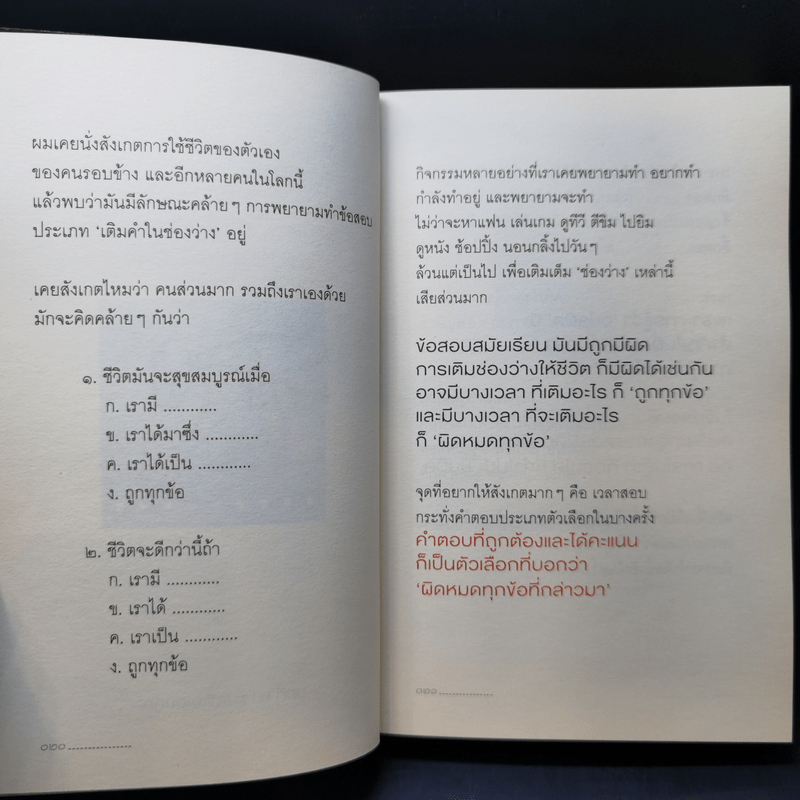 ผมเคยนั่งสังเกตการใช้ชีวิตของตัวเอง
ของคนรอบข้าง และอีกหลายคนในโลกนี้
แล้วพบว่ามันมีลักษณะคล้ายๆ การพยายามทำข้อสอบ
ประเภท ‘เติมคำในช่องว่าง’ อยู่
เคยสังเกตไหมว่า คนส่วนมาก รวมถึงเราเองด้วย
มักจะคิดคล้ายๆ กันว่า
๑. ชีวิตมันจะสุขสมบูรณ์เมื่อ
ก. เรามี ............
ข. เราได้มาซึ่ง ............
ค. เราได้เป็น ............
ง. ถูกทุกข้อ
๒. ชีวิตจะดีกว่านี้ถ้า
ก. เรามี ............
ข. เราได้ ............
ค. เราเป็น ............
ง. ถูกทุกข้อ
๑๒๐
กิจกรรมหลายอย่างที่เราเคยพยายามทำ อยากทำ
กำลังทำอยู่ และพยายามจะทำ
ไม่ว่าจะหาแฟน เล่นเกม ดูทีวี ตีขิม ไปยิม
ดูหนัง ช้อปปิ้ง นอนกลิ้งไปวันๆ
ล้วนแต่เป็นไป เพื่อเติมเต็ม ‘ช่องว่าง’ เหล่านี้
เสียส่วนมาก
ข้อสอบสมัยเรียน มันมีถูกมีผิด
การเติมช่องว่างให้ชีวิต ก็มีผิดได้เช่นกัน
อาจมีบางเวลา ที่เติมอะไร ก็ ‘ถูกทุกข้อ’
และมีบางเวลา ที่จะเติมอะไร
ก็ ‘ผิดหมดทุกข้อ’
จุดที่อยากให้สังเกตมากๆ คือ เวลาสอบ
กระทั่งคำตอบประเภทตัวเลือกในบางครั้ง
คำตอบที่ถูกต้องและได้คะแนน
ก็เป็นตัวเลือกที่บอกว่า
‘ผิดหมดทุกข้อที่กล่าวมา’
๑๒๑